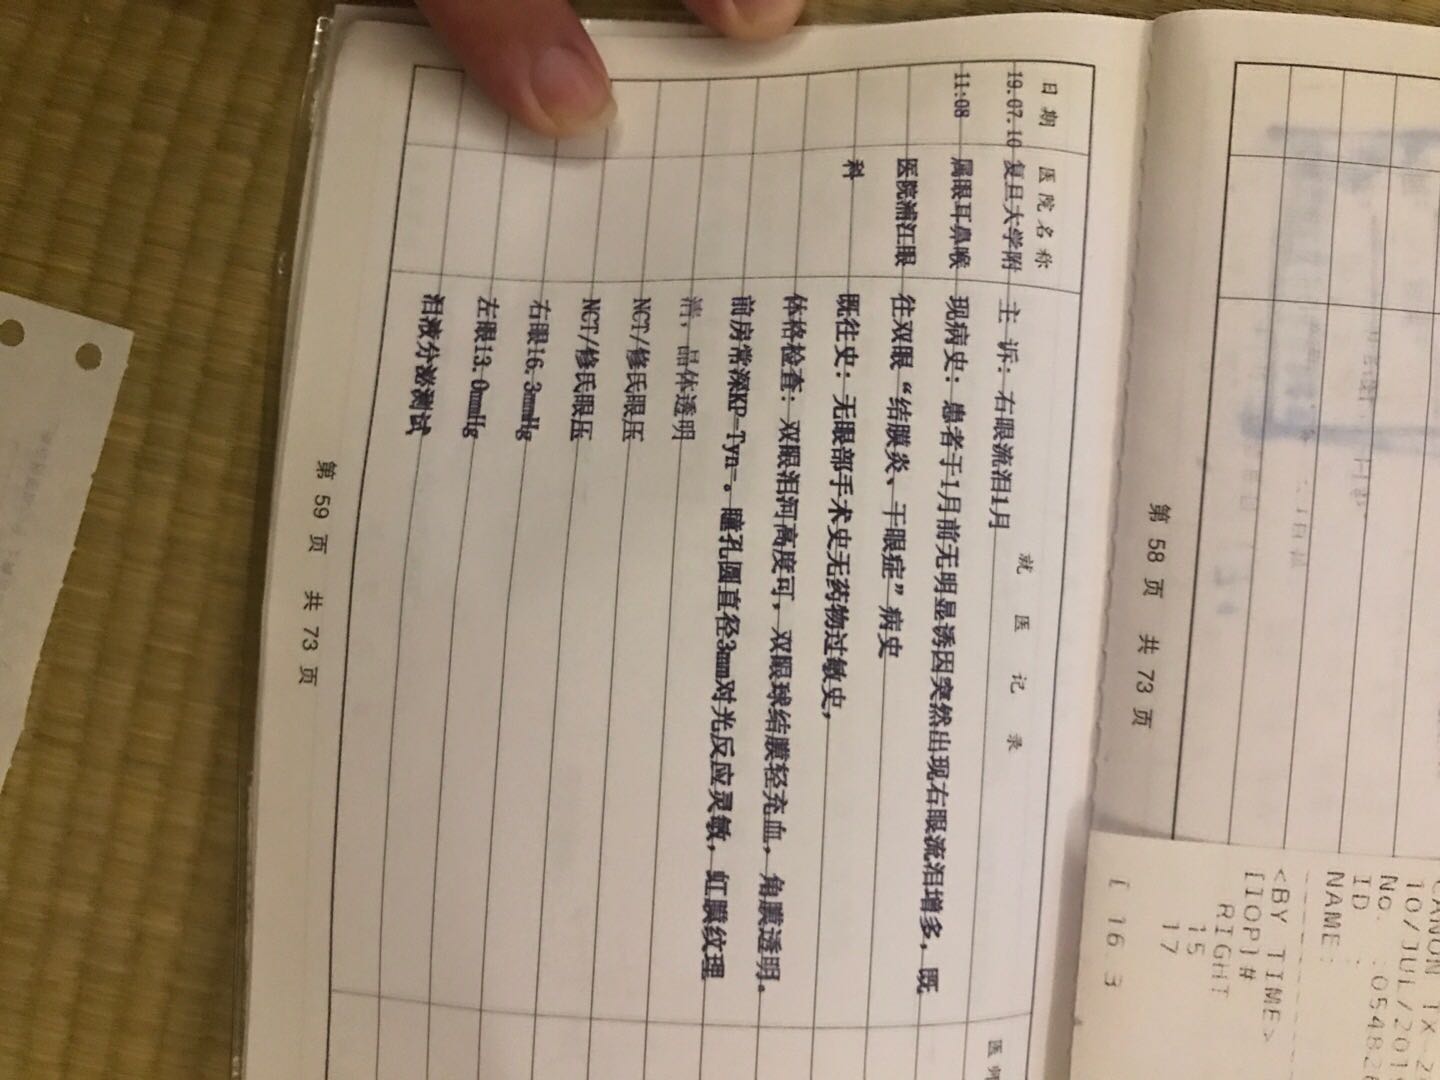 日期 医院名称 就医记录 医师
19.07.10 复旦大学附 主 诉：右眼流泪1月
11:08 属眼耳鼻喉 现病史：患者于1月前无明显诱因突然出现右眼流泪增多，既
医院浦江眼 往双眼“结膜炎、干眼症”病史
科 既往史：无眼部手术史无药物过敏史，
体格检查：双眼泪河高度可，双眼球结膜轻充血，角膜透明。
前房常深KP-Tyn-。瞳孔圆直径3mm对光反应灵敏，虹膜纹理
清，晶体透明
NCT/修氏眼压
NCT/修氏眼压
右眼16.3mmHg
左眼13.0mmHg
泪液分泌测试
第 59 页 共 73 页
第 58 页 共 73 页
CANON TX-2
10/JUL/201
No. :05482
ID :
NAME:
<BY TIME>
[IOP]#
RIGHT
15
17
[ 16.3